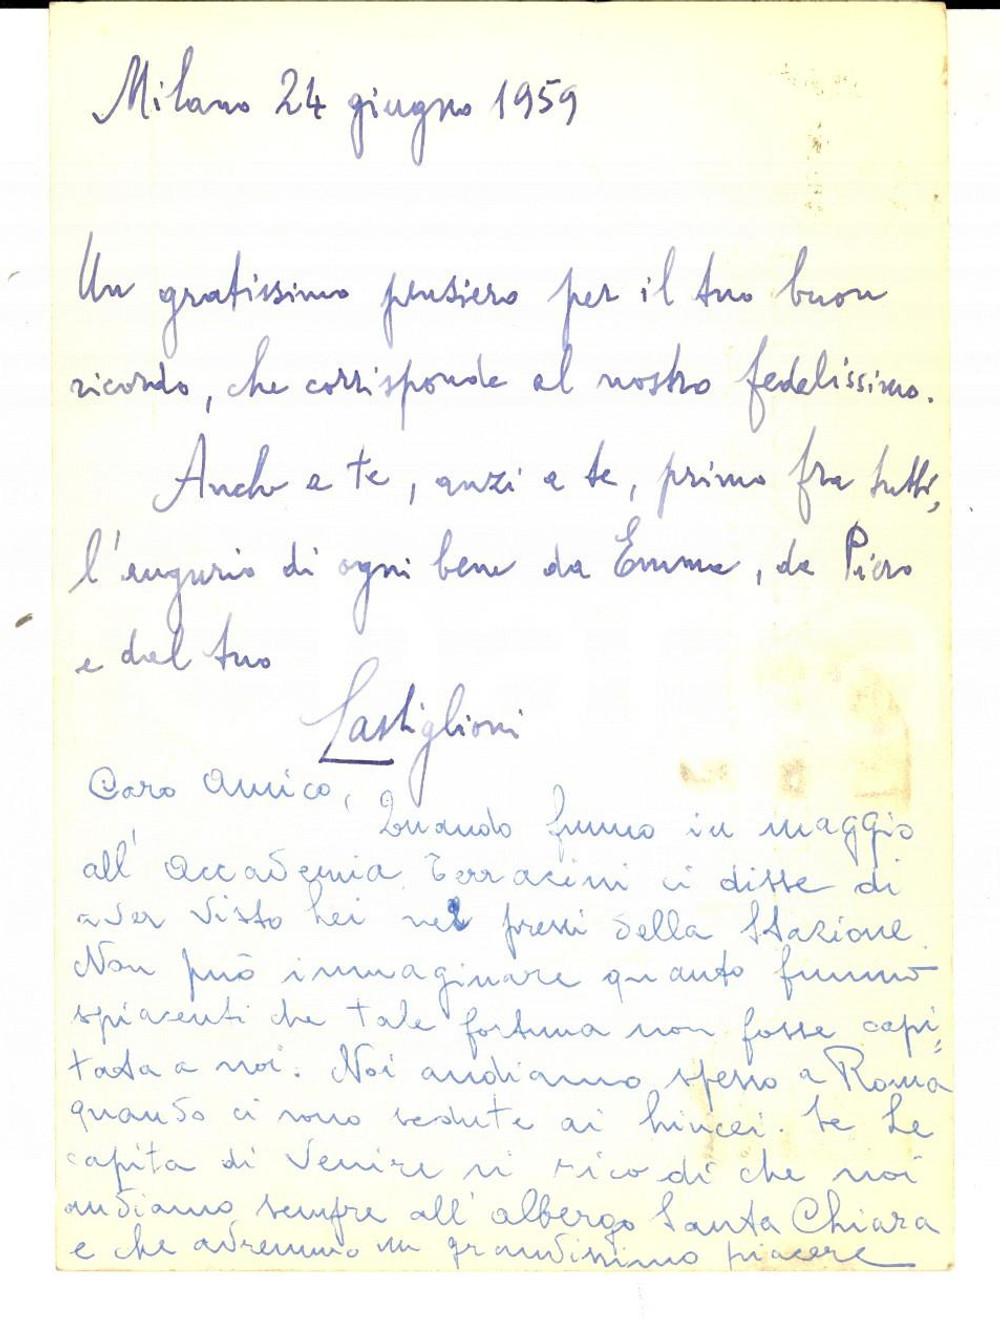 Milano 24 giugno 1959
Un gratissimo pensiero per il tuo buon
ricordo, che corrisponde al nostro fedelissimo.
Anche a te, anzi a te, primo fra tutti,
l'augurio di ogni bene da Emma, da Piero
e dal tuo
Castiglioni
Caro Amico,
Quando fummo in maggio
all' Accademia Terracini ci disse di
aver visto Lei nei pressi della Stazione.
Non può immaginare quanto fummo
spiacenti che tale fortuna non fosse capi=
tata a noi. Noi andiamo spesso a Roma
quando ci sono sedute ai Lincei. Se Le
capita di venire si ricordi che noi
andiamo sempre all' albergo Santa Chiara
e che avremmo un grandissimo piacere